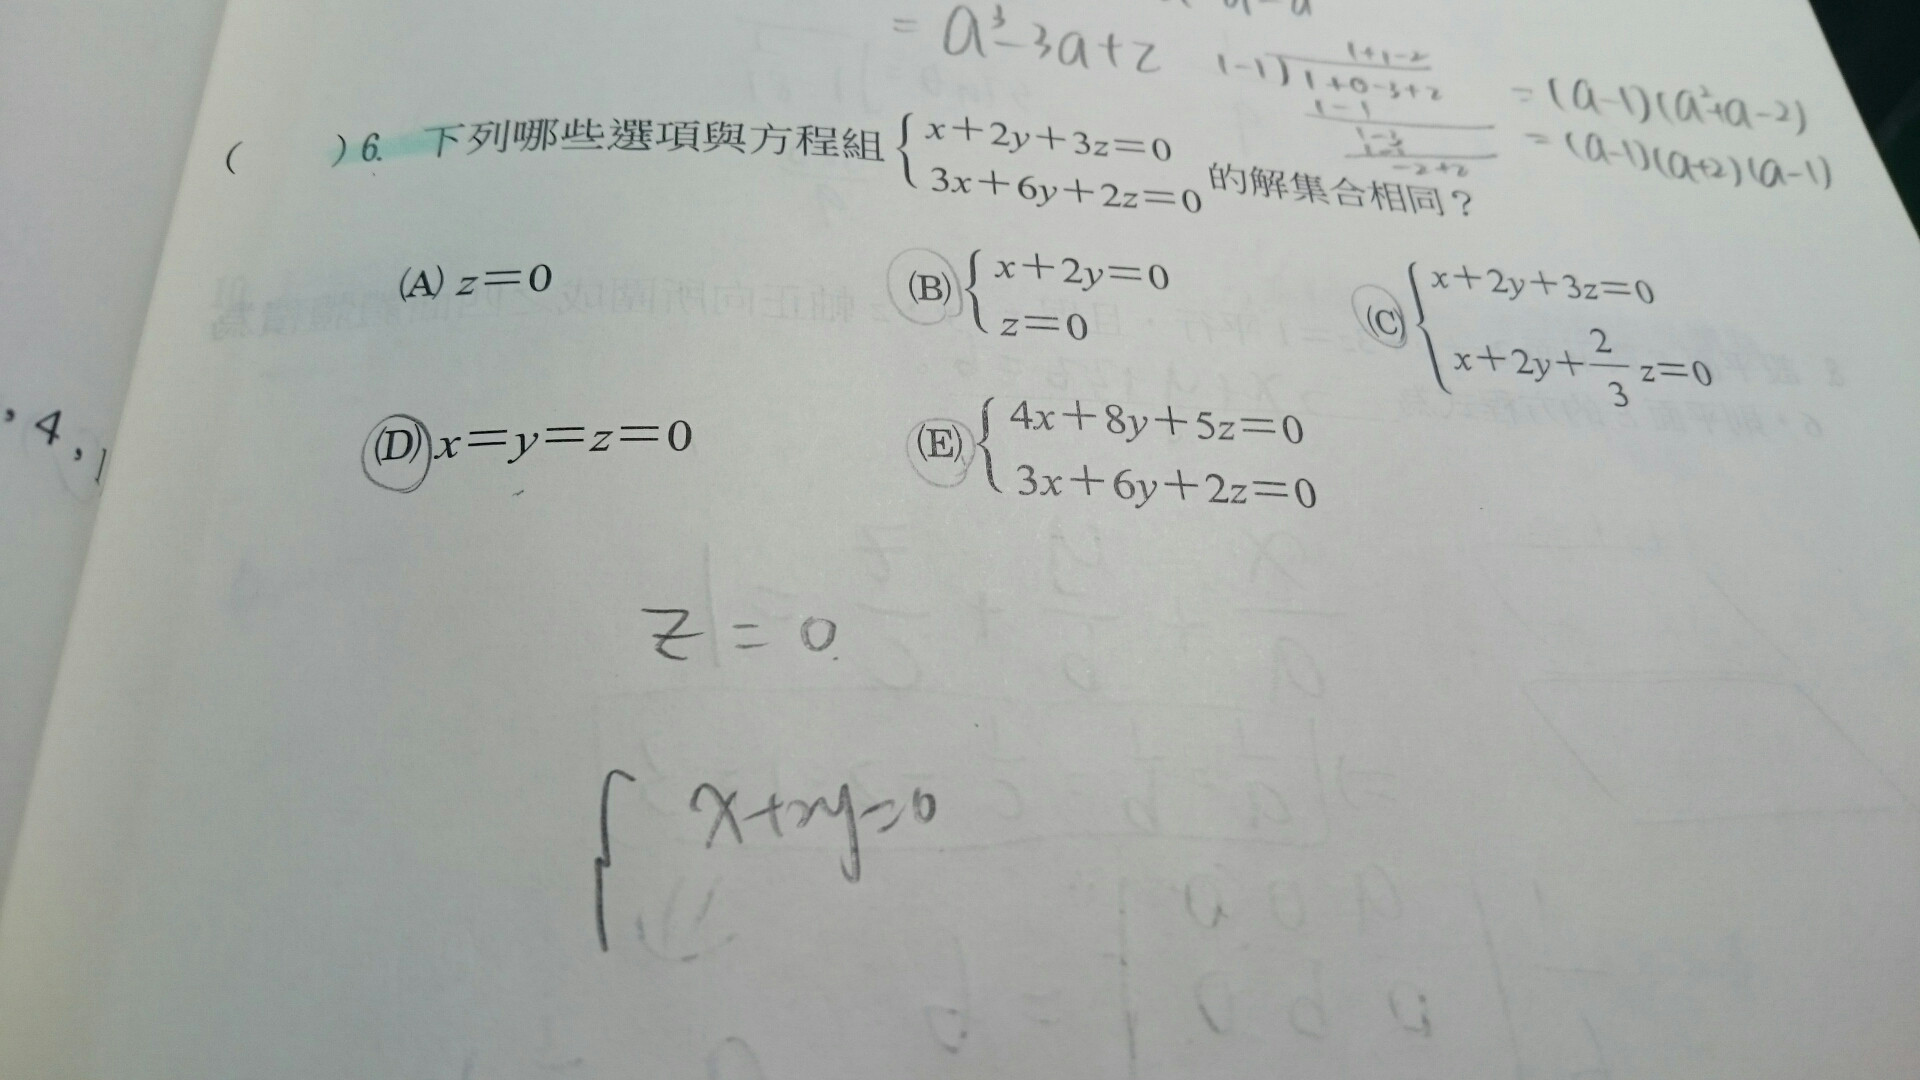 = a³-3a+2
1+1-2
1-1)1+0-3+2
1-1
1-3
1-1
-2+2
= (a-1)(a²+a-2)
= (a-1)(a+2)(a-1)
( )6. 下列哪些選項與方程組{x+2y+3z=0
3x+6y+2z=0 的解集合相同?
(A) z=0
(B){x+2y=0
z=0
(C){x+2y+3z=0
x+2y+2/3 z=0
(D) x=y=z=0
(E){4x+8y+5z=0
3x+6y+2z=0
, 4, 1
z=0
{x+2y=0